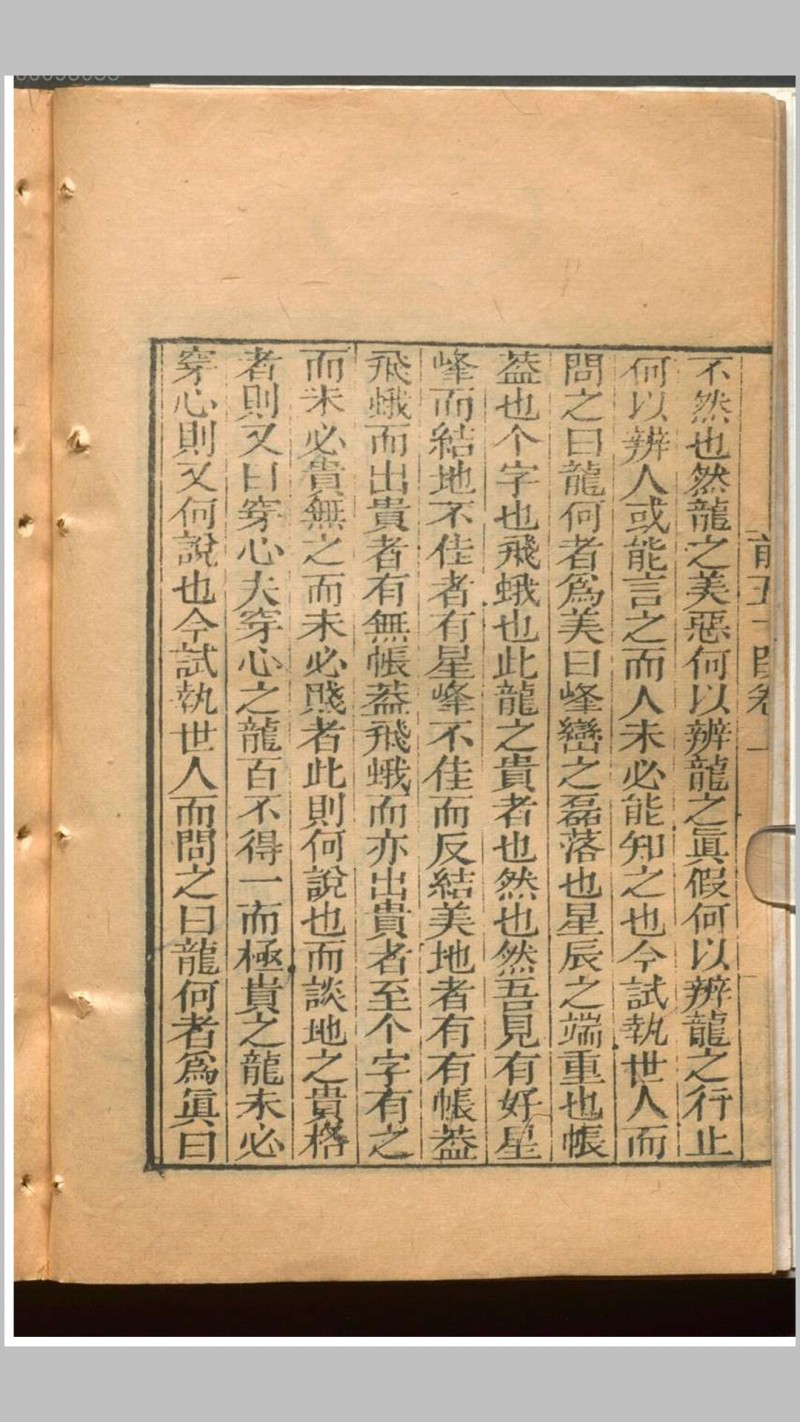 不然也然龍之美惡何以辨龍之眞假何以辨龍之行止
何以辨人或能言之而人未必能知之也今試執世人而
問之曰龍何者爲美曰峰巒之磊落也星辰之端重也帳
葢也个字也飛蛾也此龍之貴者也然也然吾見有好星
峰而結地不佳者有星峰不佳而反結美地者有有帳葢
飛蛾而出貴者有無帳葢飛蛾而亦出貴者至个字有之
而未必貴無之而未必賤者此則何說也而談地之貴格
者則又曰穿心夫穿心之龍百不得一而極貴之龍未必
穿心則又何說也今試執世人而問之曰龍何者爲眞曰